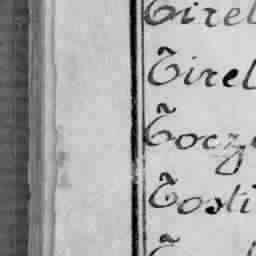 Tirel
Tirel
Tocz
Tosti